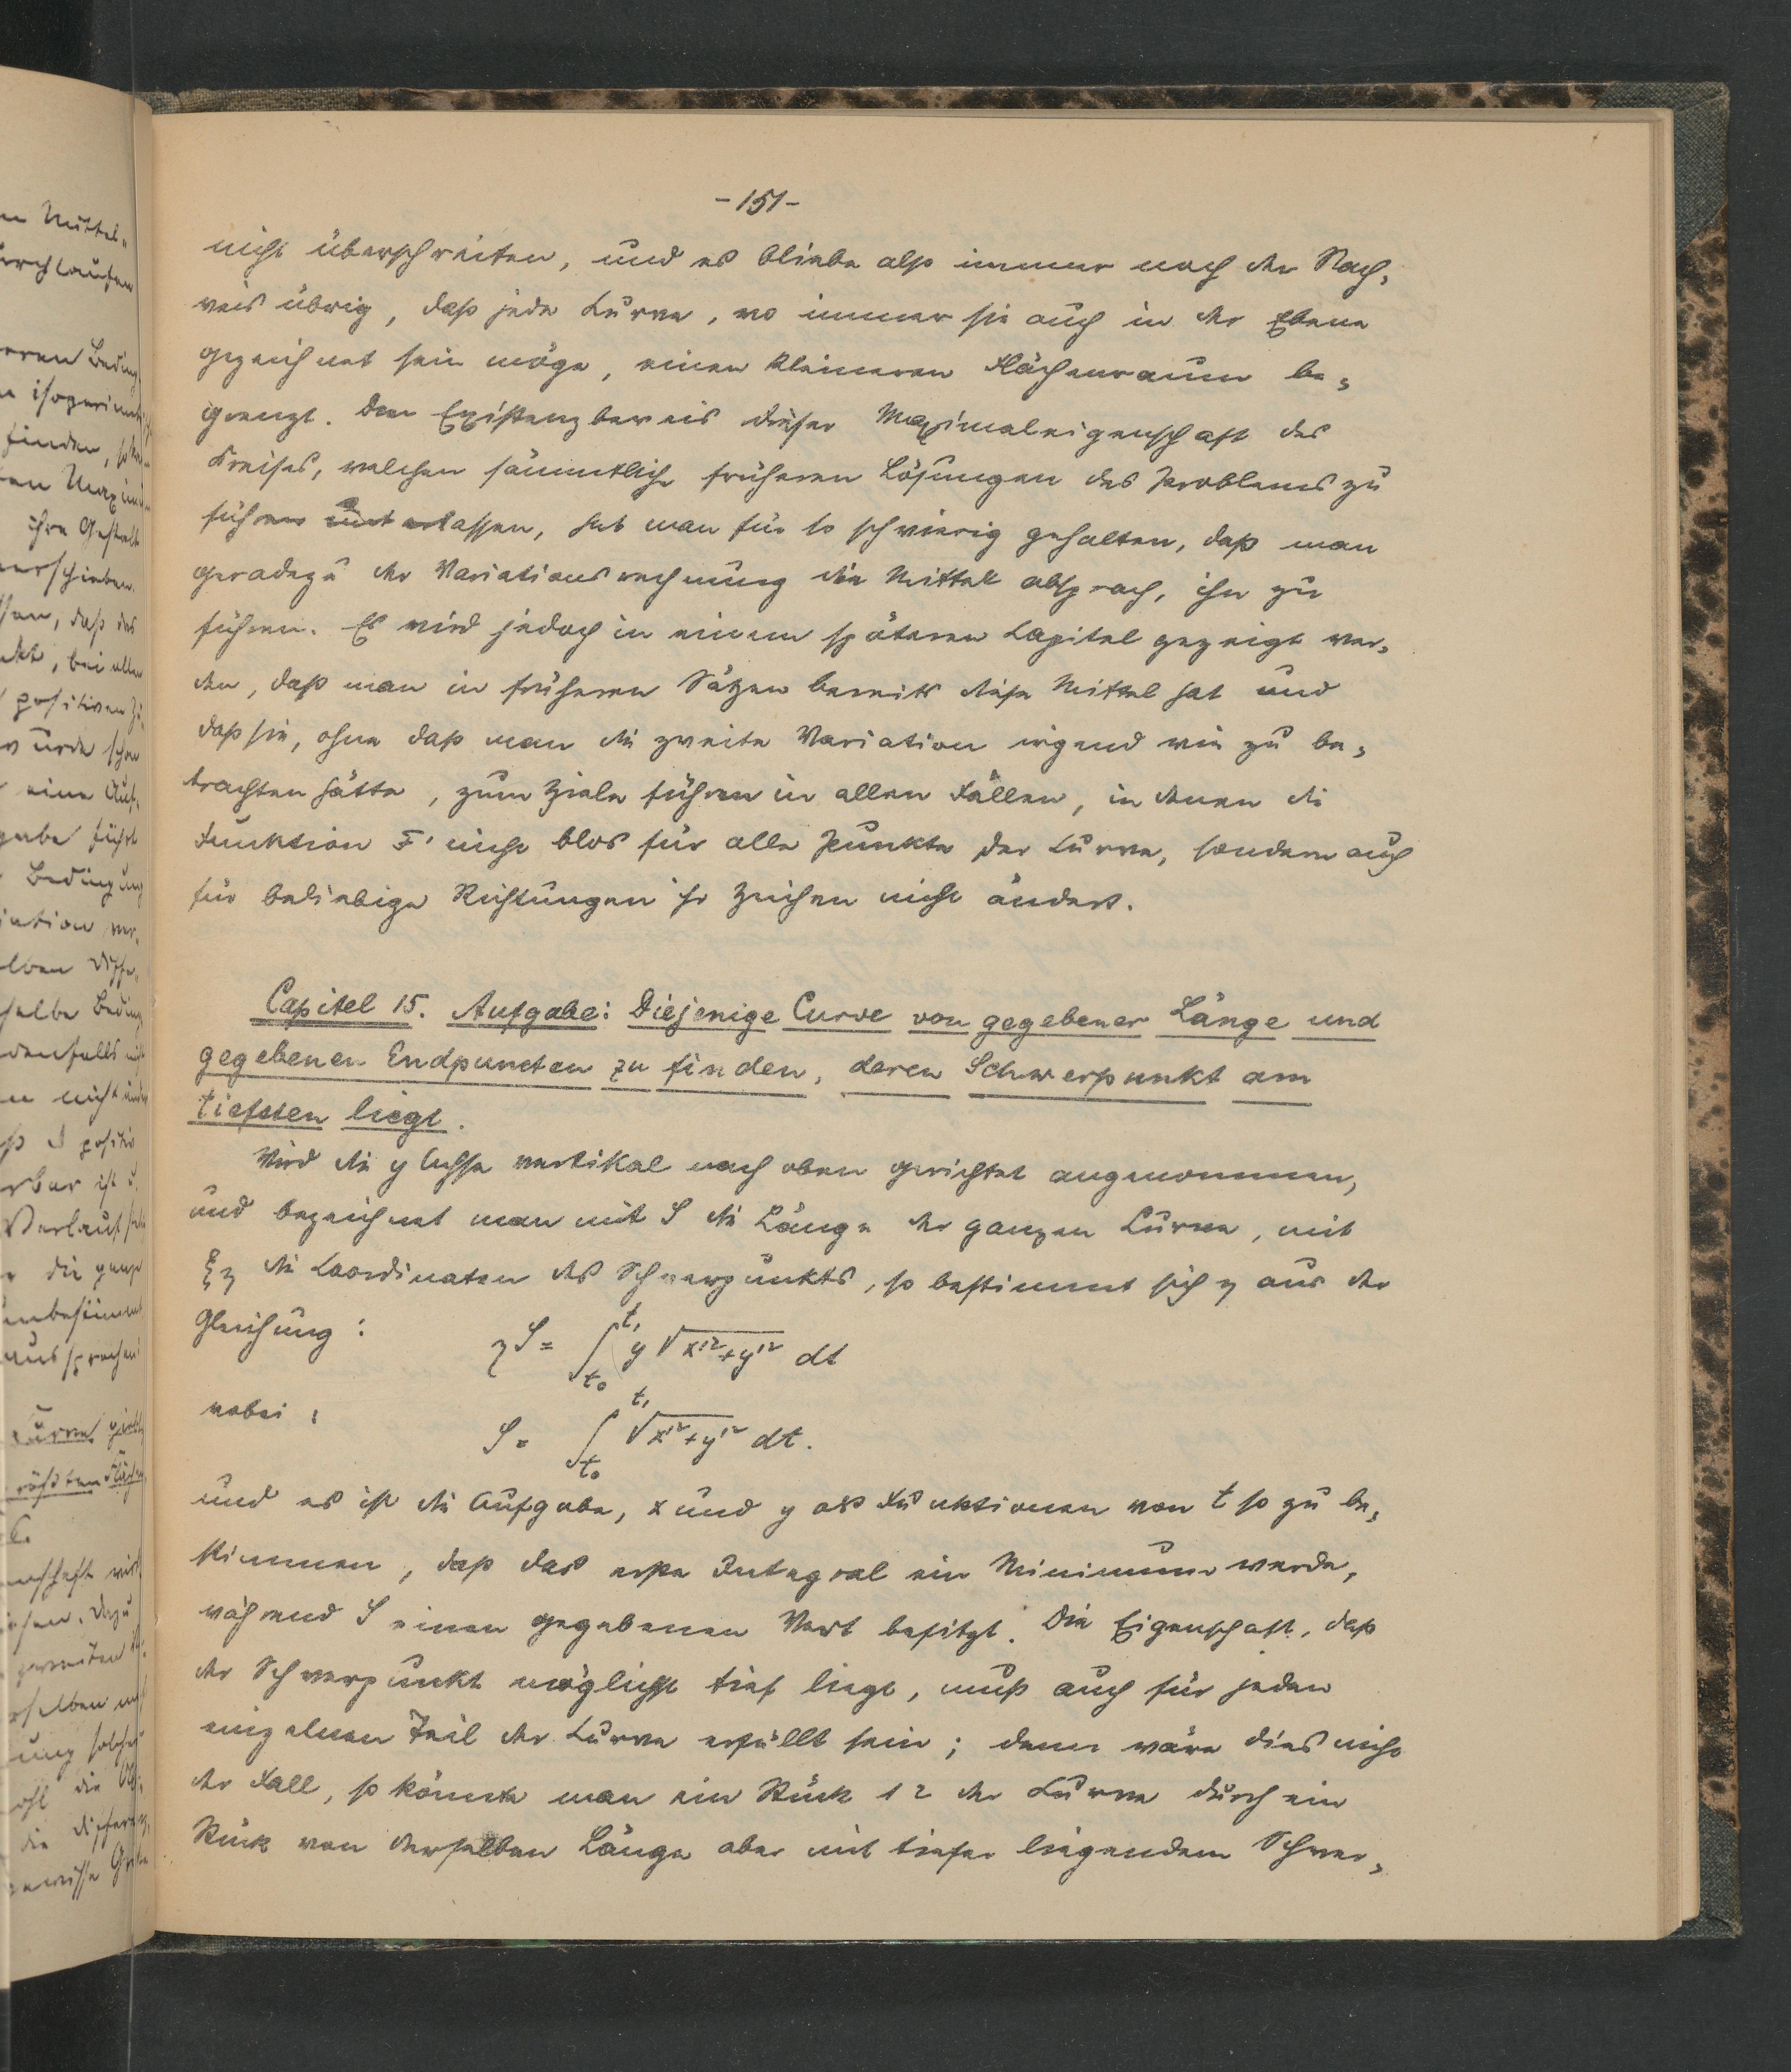 -151-
nicht überschreiten, und es bliebe also immer noch der Nach-
weis übrig, daß jede Curve, wo immer sie auch in der Ebene
gezeichnet sein möge, einen kleineren Flächenraum be-
grenzt. Den Existenzbeweis dieser Maximaleigenschaft des
Kreises, welchen sämmtliche früheren Lösungen des Problems zu
führen unterlassen, hat man für so schwierig gehalten, daß man
geradezu der Variationsrechnung die Mittel absprach, ihn zu
führen. Es wird jedoch in einem späteren Capitel gezeigt wer-
den, daß man in früheren Sätzen bereits diese Mittel hat und
daß sie, ohne daß man die zweite Variation irgend wie zu be-
trachten hätte, zum Ziele führen in allen Fällen, in denen die
Funktion F' nicht blos für alle Punkte der Curve, sondern auch
für beliebige Richtungen ihr Zeichen nicht ändert.
Capitel 15. Aufgabe: Diejenige Curve von gegebener Länge und
gegebenen Endpuncten zu finden, deren Schwerpunkt am
tiefsten liegt.
Wird die y Achse vertikal nach oben gerichtet angenommen,
und bezeichnet man mit S die Länge der ganzen Curve, mit
ξ η die Coordinaten des Schwerpunkts, so bestimmt sich η aus der
Gleichung: η S = ∫_{t₀}^{t₁} y √(x'²+y'²) dt
wobei: S = ∫_{t₀}^{t₁} √(x'²+y'²) dt.
und es ist die Aufgabe, x und y als Funktionen von t so zu be-
stimmen, daß das erste Integral ein Minimum werde,
während S einen gegebenen Wert besitzt. Die Eigenschaft, daß
der Schwerpunkt möglichst tief liegt, muß auch für jeden
einzelnen Teil der Curve erfüllt sein; denn wäre dies nicht
der Fall, so könnte man ein Stück 12 der Curve durch ein
Stück von derselben Länge aber mit tiefer liegendem Schwer-